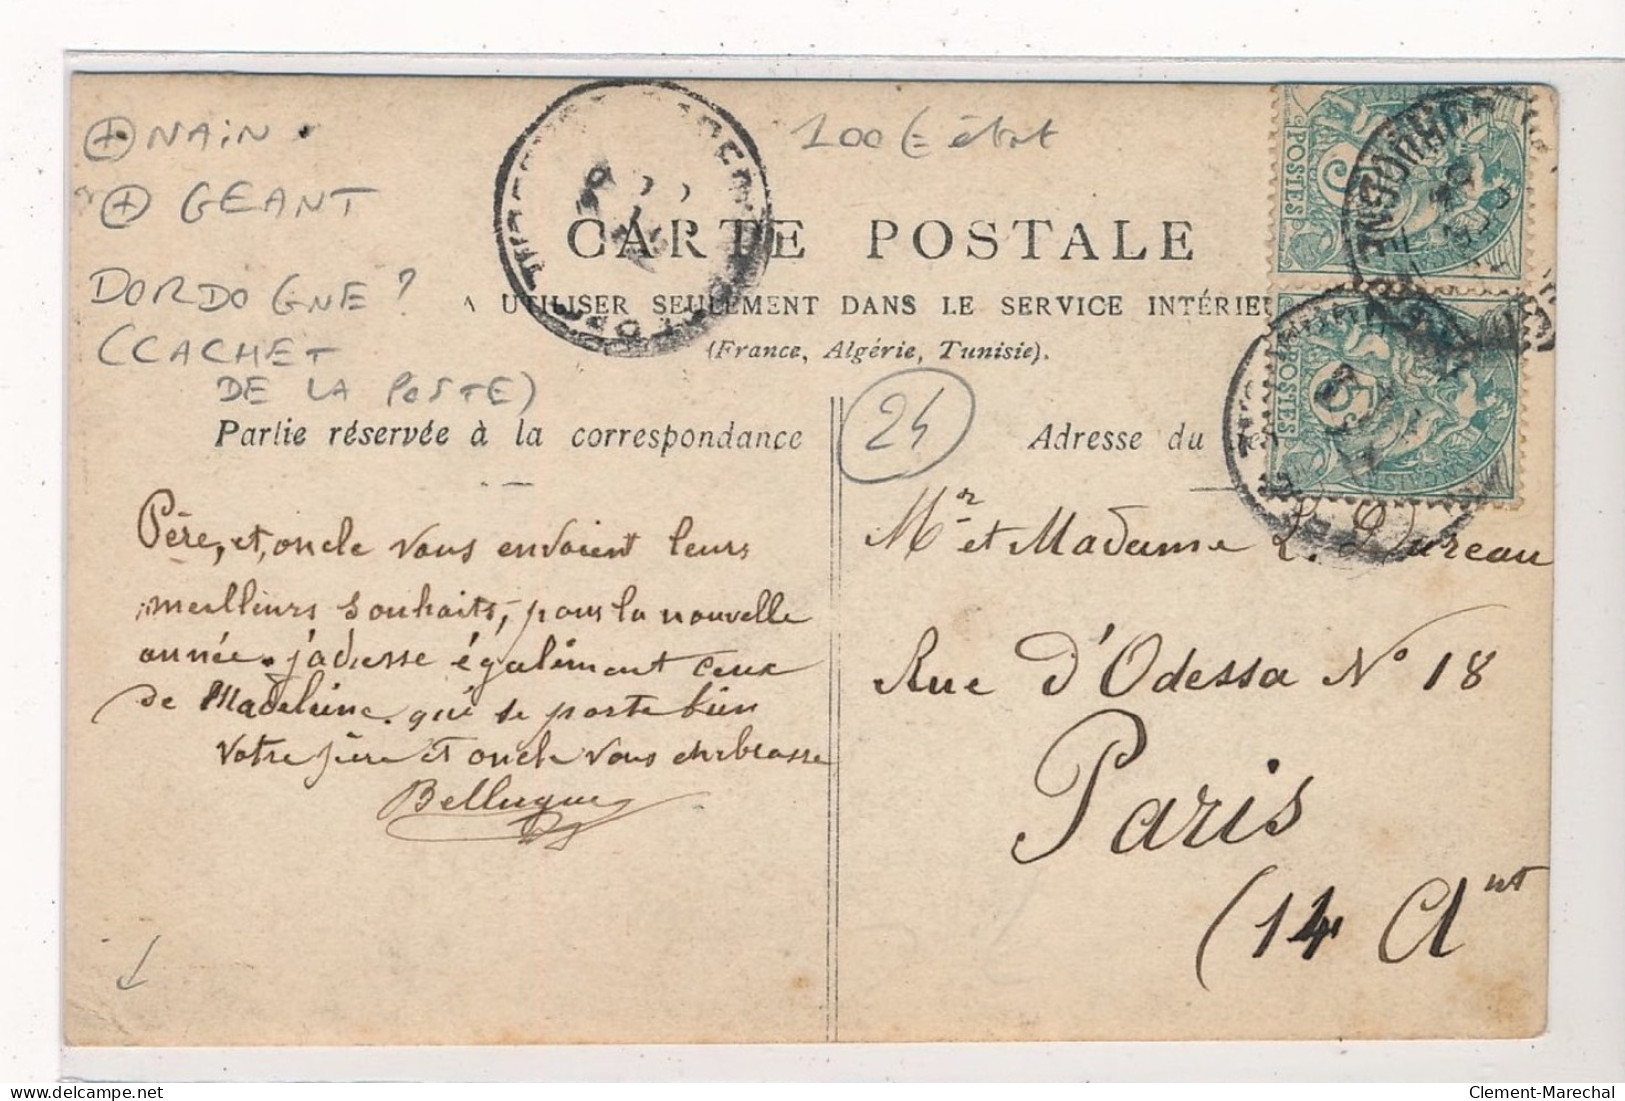 + NAIN.
+ GEANT
DORDOGNE ?
(CACHET
DE LA POSTE)
100 € état
CARTE POSTALE
A UTILISER SEULEMENT DANS LE SERVICE INTÉRIEU
(France, Algérie, Tunisie).
Partie réservée à la correspondance
24
Adresse du
POSTES
POSTES
DORDOGNE
Père, et, oncle vous envoient leurs
meilleurs souhaits, pour la nouvelle
année. j'adresse également ceux
de Madeleine. qui se porte bien
Votre père et oncle vous embrasse
Bellugue
Mr et Madame L. Dureau
Rue d'Odessa No 18
Paris
(14 Ant
Clement-Marechal